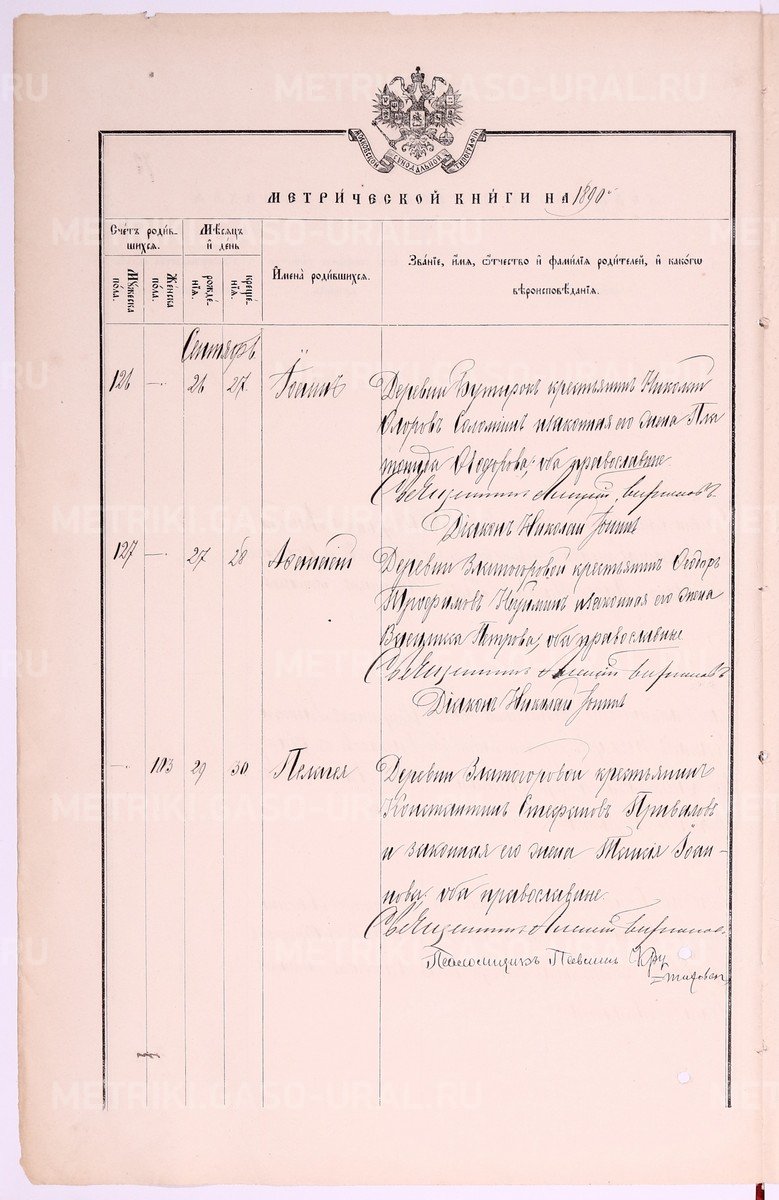 МОСКОВСКОЙ СѴНОДАЛЬНОЙ ТИПОГРАФІИ
МЕТРИ́ЧЕСКОЙ КНИ́ГИ НА 1890
Счетъ родив-
шихся.
Мѣсяцъ
и день
Мужеска
пола.
Женска
пола.
рожде-
нія.
креще-
нія.
Имена родившихся.
Званіе, имя, отчество и фамилія родителей, и какогѡ
вѣроисповѣданія.
Сентябрь
126 — 26 27 Іоаннъ
Деревни крестьянинъ Николай
Соломинъ и законная его жена Пла
Ѳеодорова, оба православные
Священникъ
Діаконъ Николай
127 — 27 28 Аѳанасій
Деревни Златогоровой крестьянинъ Ѳедоръ
Трофимовъ и законная его жена
Василиса Петрова, оба православные
Священникъ
Діаконъ Николай
— 103 29 30 Пелагея
Деревни Златогоровой крестьянинъ
Константинъ Стефановъ Приваловъ
и законная его жена Таисія Іоан-
нова оба православные.
Священникъ
Псаломщикъ
METRIKI.GASO-URAL.RU